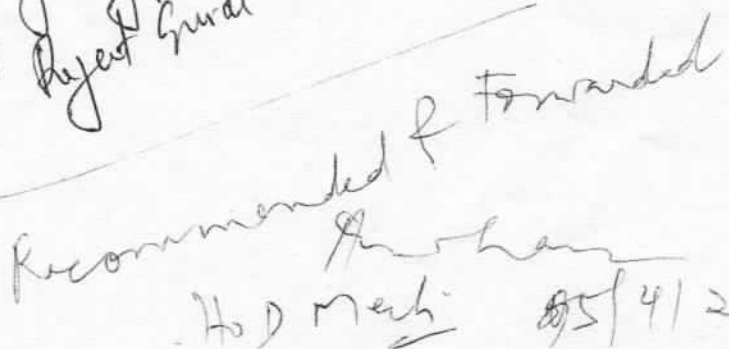 Project Guide
Recommended & Forwarded
HoD Mech.
5/4/2